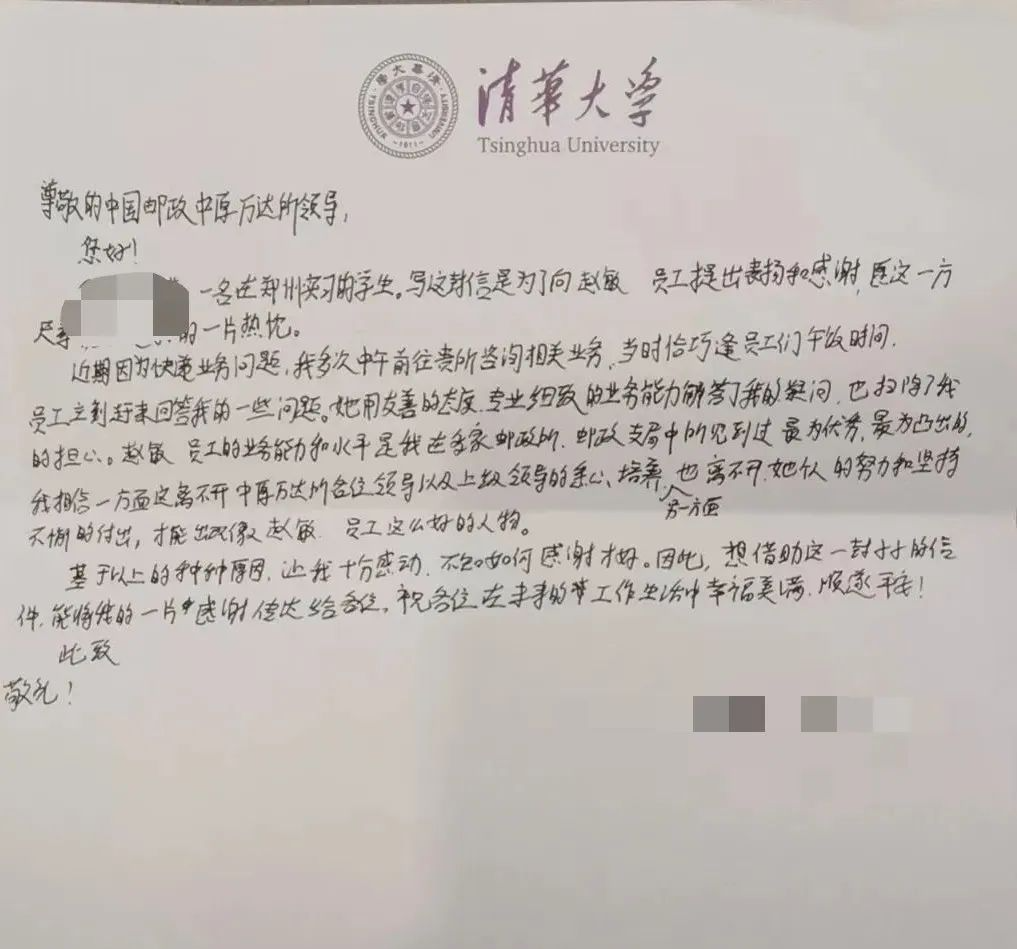 清華大学
Tsinghua University
尊敬的中国邮政中原万达所领导,
您好!
一名在郑州实习的学生。写这封信是为了向赵敏 员工提出表扬和感谢, 这一方
尺素 的一片热忱。
近期因为快递业务问题,我多次中午前往贵所咨询相关业务,当时恰巧逢员工们午饭时间.
员工立刻赶来回答我的一些问题。她用友善的态度、专业细致的业务能力解答了我的疑问,也扫除了我
的担心。赵敏 员工的业务能力和水平是我在多家邮政所、邮政支局中所见到过最为优秀,最为凸出的,
我相信一方面这离不开中原万达所各位领导以及上级领导的 心、培养,另一方面也离不开她 的努力和坚持
不懈的付出,才能出现像赵敏 员工这么好的人物。
基于以上的种种原因,让我十分感动,不知如何感谢才好。因此,想借助这一封 的信
件,能将我的一片感谢传达给各位,祝各位在未来的工作生活中幸福美满,顺遂平安!
此致
敬礼!